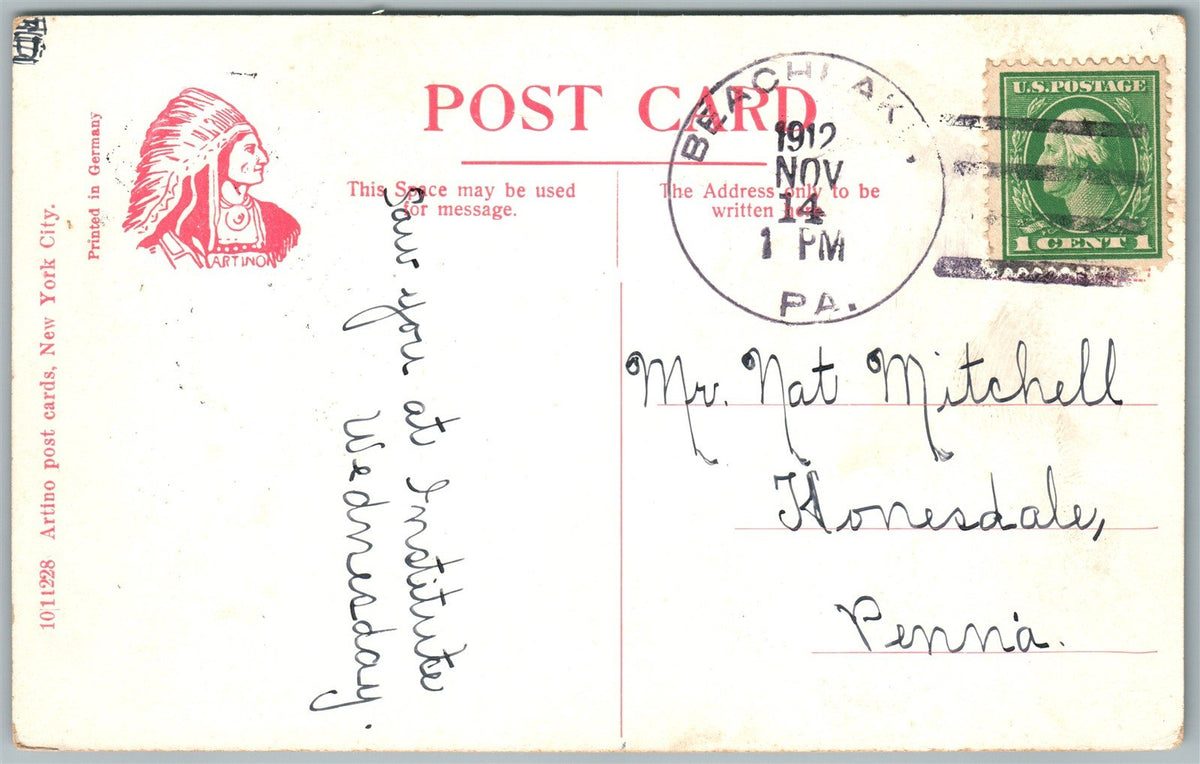 POST CARD
This Space may be used
for message.
The Address only to be
written here
BEACH LAKE
1912
NOV
14
1 PM
PA.
U.S. POSTAGE
1 CENT 1
Printed in Germany
ARTINO
10|11228 Artino post cards, New York City.
Saw you at Institute
Wednesday.
Mr. Nat Mitchell
Honesdale,
Penn'a.